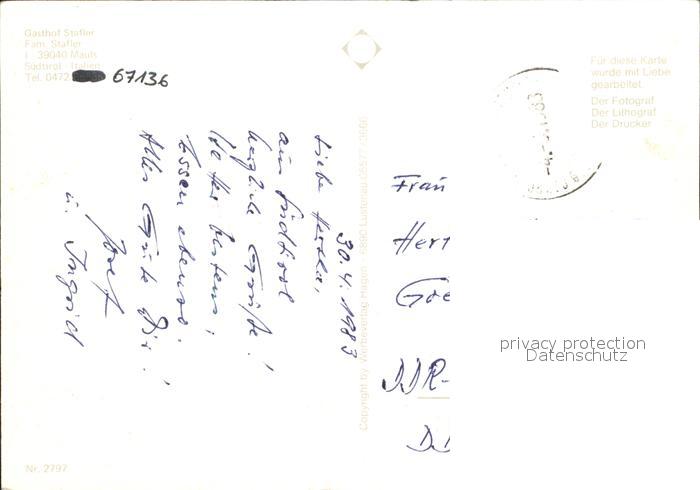 Gasthof Stafler
Fam. Stafler
I - 39040 Mauls
Südtirol - Italien
Tel. 0472
67136
Für diese Karte
wurde mit Liebe
gearbeitet.
Der Fotograf
Der Lithograf
Der Drucker
30.4.1983
Liebe Hertha,
aus Südtirol
herzliche Grüße!
Wetter bestens,
Essen ebenso.
Alles Gute Dir!
Josef
u. Ingrid
Copyright by Werbeverlag
Frau
Hert
Goe
DDR-
D
privacy protection
Datenschutz
Nr. 2797